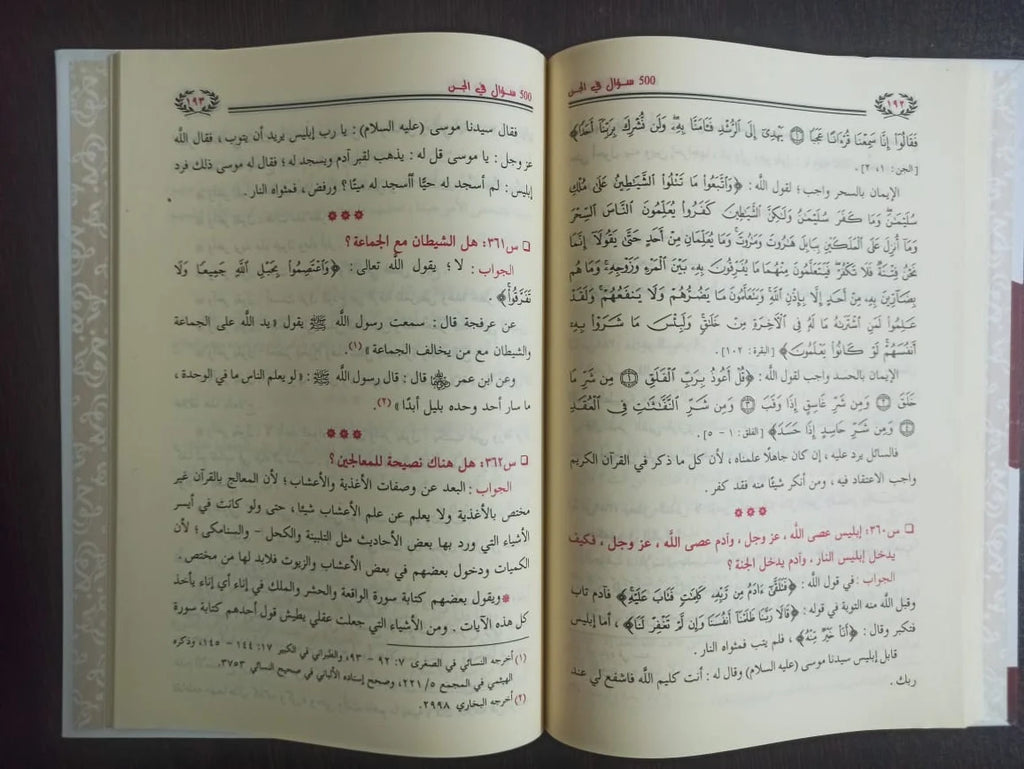 500 سؤال في الجن
١٩٢
فَقَالُوا إِنَّا سَمِعْنَا قُرْءَانًا عَجَبًا ۝١ يَهْدِي إِلَى الرُّشْدِ فَـَٔامَنَّا بِهِ وَلَن نُّشْرِكَ بِرَبِّنَا أَحَدًا﴾
[الجن : ١، ٢].
الإيمان بالسحر واجب؛ لقول الله : ﴿وَاتَّبَعُوا مَا تَتْلُوا الشَّيَاطِينُ عَلَىٰ مُلْكِ
سُلَيْمَٰنَ وَمَا كَفَرَ سُلَيْمَٰنُ وَلَٰكِنَّ الشَّيَٰطِينَ كَفَرُوا يُعَلِّمُونَ النَّاسَ السِّحْرَ
وَمَا أُنزِلَ عَلَى الْمَلَكَيْنِ بِبَابِلَ هَٰرُوتَ وَمَٰرُوتَ وَمَا يُعَلِّمَانِ مِنْ أَحَدٍ حَتَّىٰ يَقُولَا إِنَّمَا
نَحْنُ فِتْنَةٌ فَلَا تَكْفُرْ فَيَتَعَلَّمُونَ مِنْهُمَا مَا يُفَرِّقُونَ بِهِ بَيْنَ الْمَرْءِ وَزَوْجِهِ وَمَا هُم
بِضَارِّينَ بِهِ مِنْ أَحَدٍ إِلَّا بِإِذْنِ اللَّهِ وَيَتَعَلَّمُونَ مَا يَضُرُّهُمْ وَلَا يَنفَعُهُمْ وَلَقَدْ
عَلِمُوا لَمَنِ اشْتَرَىٰهُ مَا لَهُ فِي الْآخِرَةِ مِنْ خَلَٰقٍ وَلَبِئْسَ مَا شَرَوْا بِهِ
أَنفُسَهُمْ لَوْ كَانُوا يَعْلَمُونَ﴾ [البقرة : ١٠٢].
الإيمان بالحسد واجب لقول الله : ﴿قُلْ أَعُوذُ بِرَبِّ الْفَلَقِ ۝١ مِن شَرِّ مَا
خَلَقَ ۝٢ وَمِن شَرِّ غَاسِقٍ إِذَا وَقَبَ ۝٣ وَمِن شَرِّ النَّفَّٰثَٰتِ فِي الْعُقَدِ
۝٤ وَمِن شَرِّ حَاسِدٍ إِذَا حَسَدَ﴾ [الفلق : ١ - ٥].
فالسائل يرد عليه ، إن كان جاهلًا علمناه ، لأن كل ما ذكر في القرآن الكريم
واجب الاعتقاد فيه ، ومن أنكر شيئًا منه فقد كفر .
❋ ❋ ❋
❑ س٣٦٠: إبليس عصى الله ، عز وجل ، وآدم عصى الله ، عز وجل ، فكيف
يدخل إبليس النار ، وآدم يدخل الجنة ؟
الجواب : في قول الله : ﴿فَتَلَقَّىٰ ءَادَمُ مِن رَّبِّهِ كَلِمَٰتٍ فَتَابَ عَلَيْهِ﴾ فآدم تاب
وقبل الله منه التوبة في قوله : ﴿قَالَا رَبَّنَا ظَلَمْنَا أَنفُسَنَا وَإِن لَّمْ تَغْفِرْ لَنَا﴾ ، أما إبليس
فتكبر وقال : ﴿أَنَا خَيْرٌ مِّنْهُ﴾ ، فلم يتب فمثواه النار .
قابل إبليس سيدنا موسى (عليه السلام) وقال له : أنت كليم الله فاشفع لي عند
ربك .
500 سؤال في الجن
١٩٣
فقال سيدنا موسى (عليه السلام) : يا رب إبليس يريد أن يتوب ، فقال الله
عز وجل : يا موسى قل له : يذهب لقبر آدم ويسجد له ؛ فقال له موسى ذلك فرد
إبليس : لم أسجد له حيًّا أأسجد له ميتًا ؟ ورفض ، فمثواه النار .
❋ ❋ ❋
❑ س٣٦١: هل الشيطان مع الجماعة ؟
الجواب : لا ؛ يقول الله تعالى : ﴿وَاعْتَصِمُوا بِحَبْلِ اللَّهِ جَمِيعًا وَلَا
تَفَرَّقُوا﴾ .
عن عرفجة قال : سمعت رسول الله ﷺ يقول «يد الله على الجماعة
والشيطان مع من يخالف الجماعة » (١).
وعن ابن عمر رضي الله عنهما قال : قال رسول الله ﷺ : «لو يعلم الناس ما في الوحدة ،
ما سار أحد وحده بليل أبدًا» (٢).
❋ ❋ ❋
❑ س٣٦٢: هل هناك نصيحة للمعالجين ؟
الجواب : البعد عن وصفات الأغذية والأعشاب ؛ لأن المعالج بالقرآن غير
مختص بالأغذية ولا يعلم عن علم الأعشاب شيئا ، حتى ولو كانت في أيسر
الأشياء التي ورد بها بعض الأحاديث مثل التلبينة والكحل - والسنامكى ؛ لأن
الكميات ودخول بعضهم في بعض الأعشاب والزيوت فلابد لها من مختص .
❋ ويقول بعضهم كتابة سورة الواقعة والحشر والملك في إناء أي إناء يأخذ
كل هذه الآيات . ومن الأشياء التي جعلت عقلي يطيش قول أحدهم كتابة سورة
(١) أخرجه النسائي في الصغرى ٧: ٩٢ - ٩٣، والطبراني في الكبير ١٧: ١٤٤ - ١٤٥، وذكره
الهيثمي في المجمع ٥/ ٢٢١، وصحح إسناده الألباني في صحيح النسائي ٣٧٥٣.
(٢) أخرجه البخاري ٢٩٩٨.